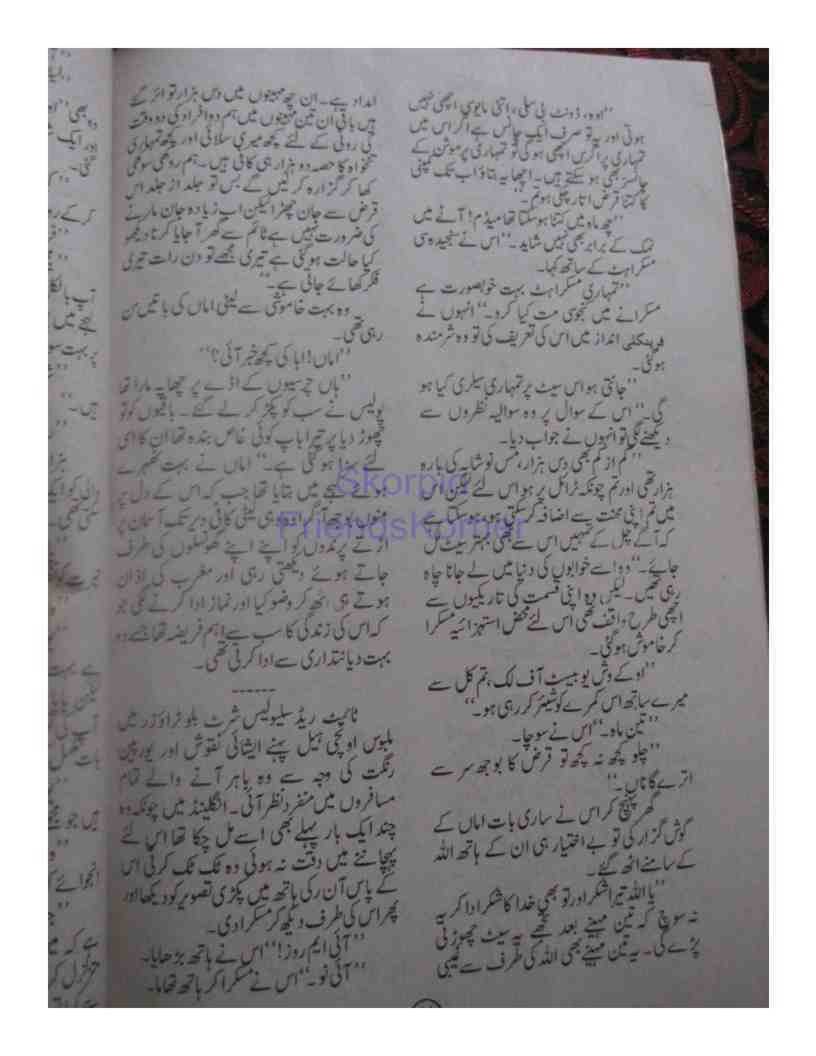 ”اوہ، ڈونٹ بی سلی، اتنی مایوسی اچھی نہیں
ہوتی اور یہ تو صرف ایک چانس ہے اگر اس میں
تمہاری پراگرس اچھی ہوگی تو تمہاری پرموشن کے
چانسز بھی ہوسکتے ہیں۔ اچھا یہ بتاؤ اب تک کمپنی
کا کتنا قرض اتار چکی ہو تم۔“
”چھ ماہ میں کتنا ہوسکتا تھا میڈم! آٹے میں
نمک کے برابر بھی نہیں شاید۔“ اس نے سنجیدہ سی
مسکراہٹ کے ساتھ کہا۔
”تمہاری مسکراہٹ بہت خوبصورت ہے
مسکرانے میں کنجوسی مت کیا کرو۔“ انہوں نے
فرینکلی انداز میں اس کی تعریف کی تو وہ شرمندہ
ہوگئی۔
”جانتی ہو اس سیٹ پر تمہاری سیلری کیا ہو
گی۔“ اس کے سوال پر وہ سوالیہ نظروں سے
دیکھنے لگی تو انہوں نے جواب دیا۔
”کم از کم بھی دس ہزار، مس نوشابہ کی بارہ
ہزار تھی اور تم چونکہ ٹرائل پر ہو اس لئے لیکن اس
میں تم اپنی محنت سے اضافہ کرسکتی ہو، ہوسکتا ہے
کہ آگے چل کے تمہیں اس سے بھی بہتر سیٹ مل
جائے۔“ وہ اسے خوابوں کی دنیا میں لے جانا چاہ
رہی تھیں۔ لیکن وہ اپنی قسمت کی تاریکیوں سے
اچھی طرح واقف تھی اس لئے محض استہزائیہ مسکرا
کر خاموش ہوگئی۔
”اوکے وش یو بیسٹ آف لک، تم کل سے
میرے ساتھ اس کمرے کو شیئر کررہی ہو۔“
”تین ماہ۔“ اس نے سوچا۔
”چلو کچھ نہ کچھ تو قرض کا بوجھ سر سے
اترے گا ناں۔“
گھر پہنچ کر اس نے ساری بات اماں کے
گوش گزار کی تو بے اختیار ہی ان کے ہاتھ اللہ
کے سامنے اٹھ گئے۔
”یا اللہ تیرا شکر اور تو بھی خدا کا شکر ادا کر یہ
نہ سوچ کہ تین مہینے بعد تجھے یہ سیٹ چھوڑنی
پڑے گی۔ یہ تین مہینے بھی اللہ کی طرف سے غیبی
امداد ہے۔ ان چھ مہینوں میں دس ہزار تو اتر گئے
ہیں باقی ان تین مہینوں میں ہم دو افراد کی دو وقت
کی روٹی کے لئے کچھ میری سلائی اور کچھ تمہاری
تنخواہ کا حصہ دو ہزار ہی کافی ہیں۔ ہم روکھی سوکھی
کھا کر گزارہ کرلیں گے بس تو جلد از جلد اس
قرض سے جان چھڑا لیکن اب زیادہ جان مارنے
کی ضرورت نہیں ہے ٹائم سے گھر آجایا کرنا دیکھو
کیا حالت ہوگئی ہے تیری مجھے تو دن رات تیری
فکر کھائے جاتی ہے۔“
وہ بہت خاموشی سے لیٹی اماں کی باتیں سن
رہی تھی۔
”اماں! ابا کی کچھ خبر آئی؟“
”ہاں چرسیوں کے اڈے پر چھاپہ مارا تھا
پولیس نے سب کو پکڑ کر لے گئے۔ باقیوں کو تو
چھوڑ دیا پر تیرا باپ کوئی خاص بندہ تھا ان کا اسی
لئے سزا ہوگئی ہے۔“ اماں نے بہت ٹھہرے
ہوئے لہجے میں بتایا تھا جب کہ اس کے دل پر
منوں بوجھ آگرا وہ وہی لیٹی کافی دیر تک آسمان پر
اڑتے پرندوں کو اپنے اپنے گھونسلوں کی طرف
جاتے ہوئے دیکھتی رہی اور مغرب کی اذان
ہوتے ہی اٹھ کر وضو کیا اور نماز ادا کرنے لگی جو
کہ اس کی زندگی کا سب سے اہم فریضہ تھا جسے وہ
بہت دیانتداری سے ادا کرتی تھی۔
------
ٹائیٹ ریڈ سلیولیس شرٹ بلو ٹراؤزر میں
ملبوس اونچی ہیل پہنے ایشیائی نقوش اور یورپین
رنگت کی وجہ سے وہ باہر آنے والے تمام
مسافروں میں منفرد نظر آئی۔ انگلینڈ میں چونکہ وہ
چند ایک بار پہلے بھی اسے مل چکا تھا اس لئے
پہچاننے میں دقت نہ ہوئی وہ ٹک ٹک کرتی اس
کے پاس آن رکی ہاتھ میں پکڑی تصویر کو دیکھا اور
پھر اس کی طرف دیکھ کر مسکرا دی۔
”آئی ایم روز!“ اس نے ہاتھ بڑھایا۔
”آئی نو۔“ اس نے مسکرا کر ہاتھ تھاما۔
Skorpio
FriendsKorner